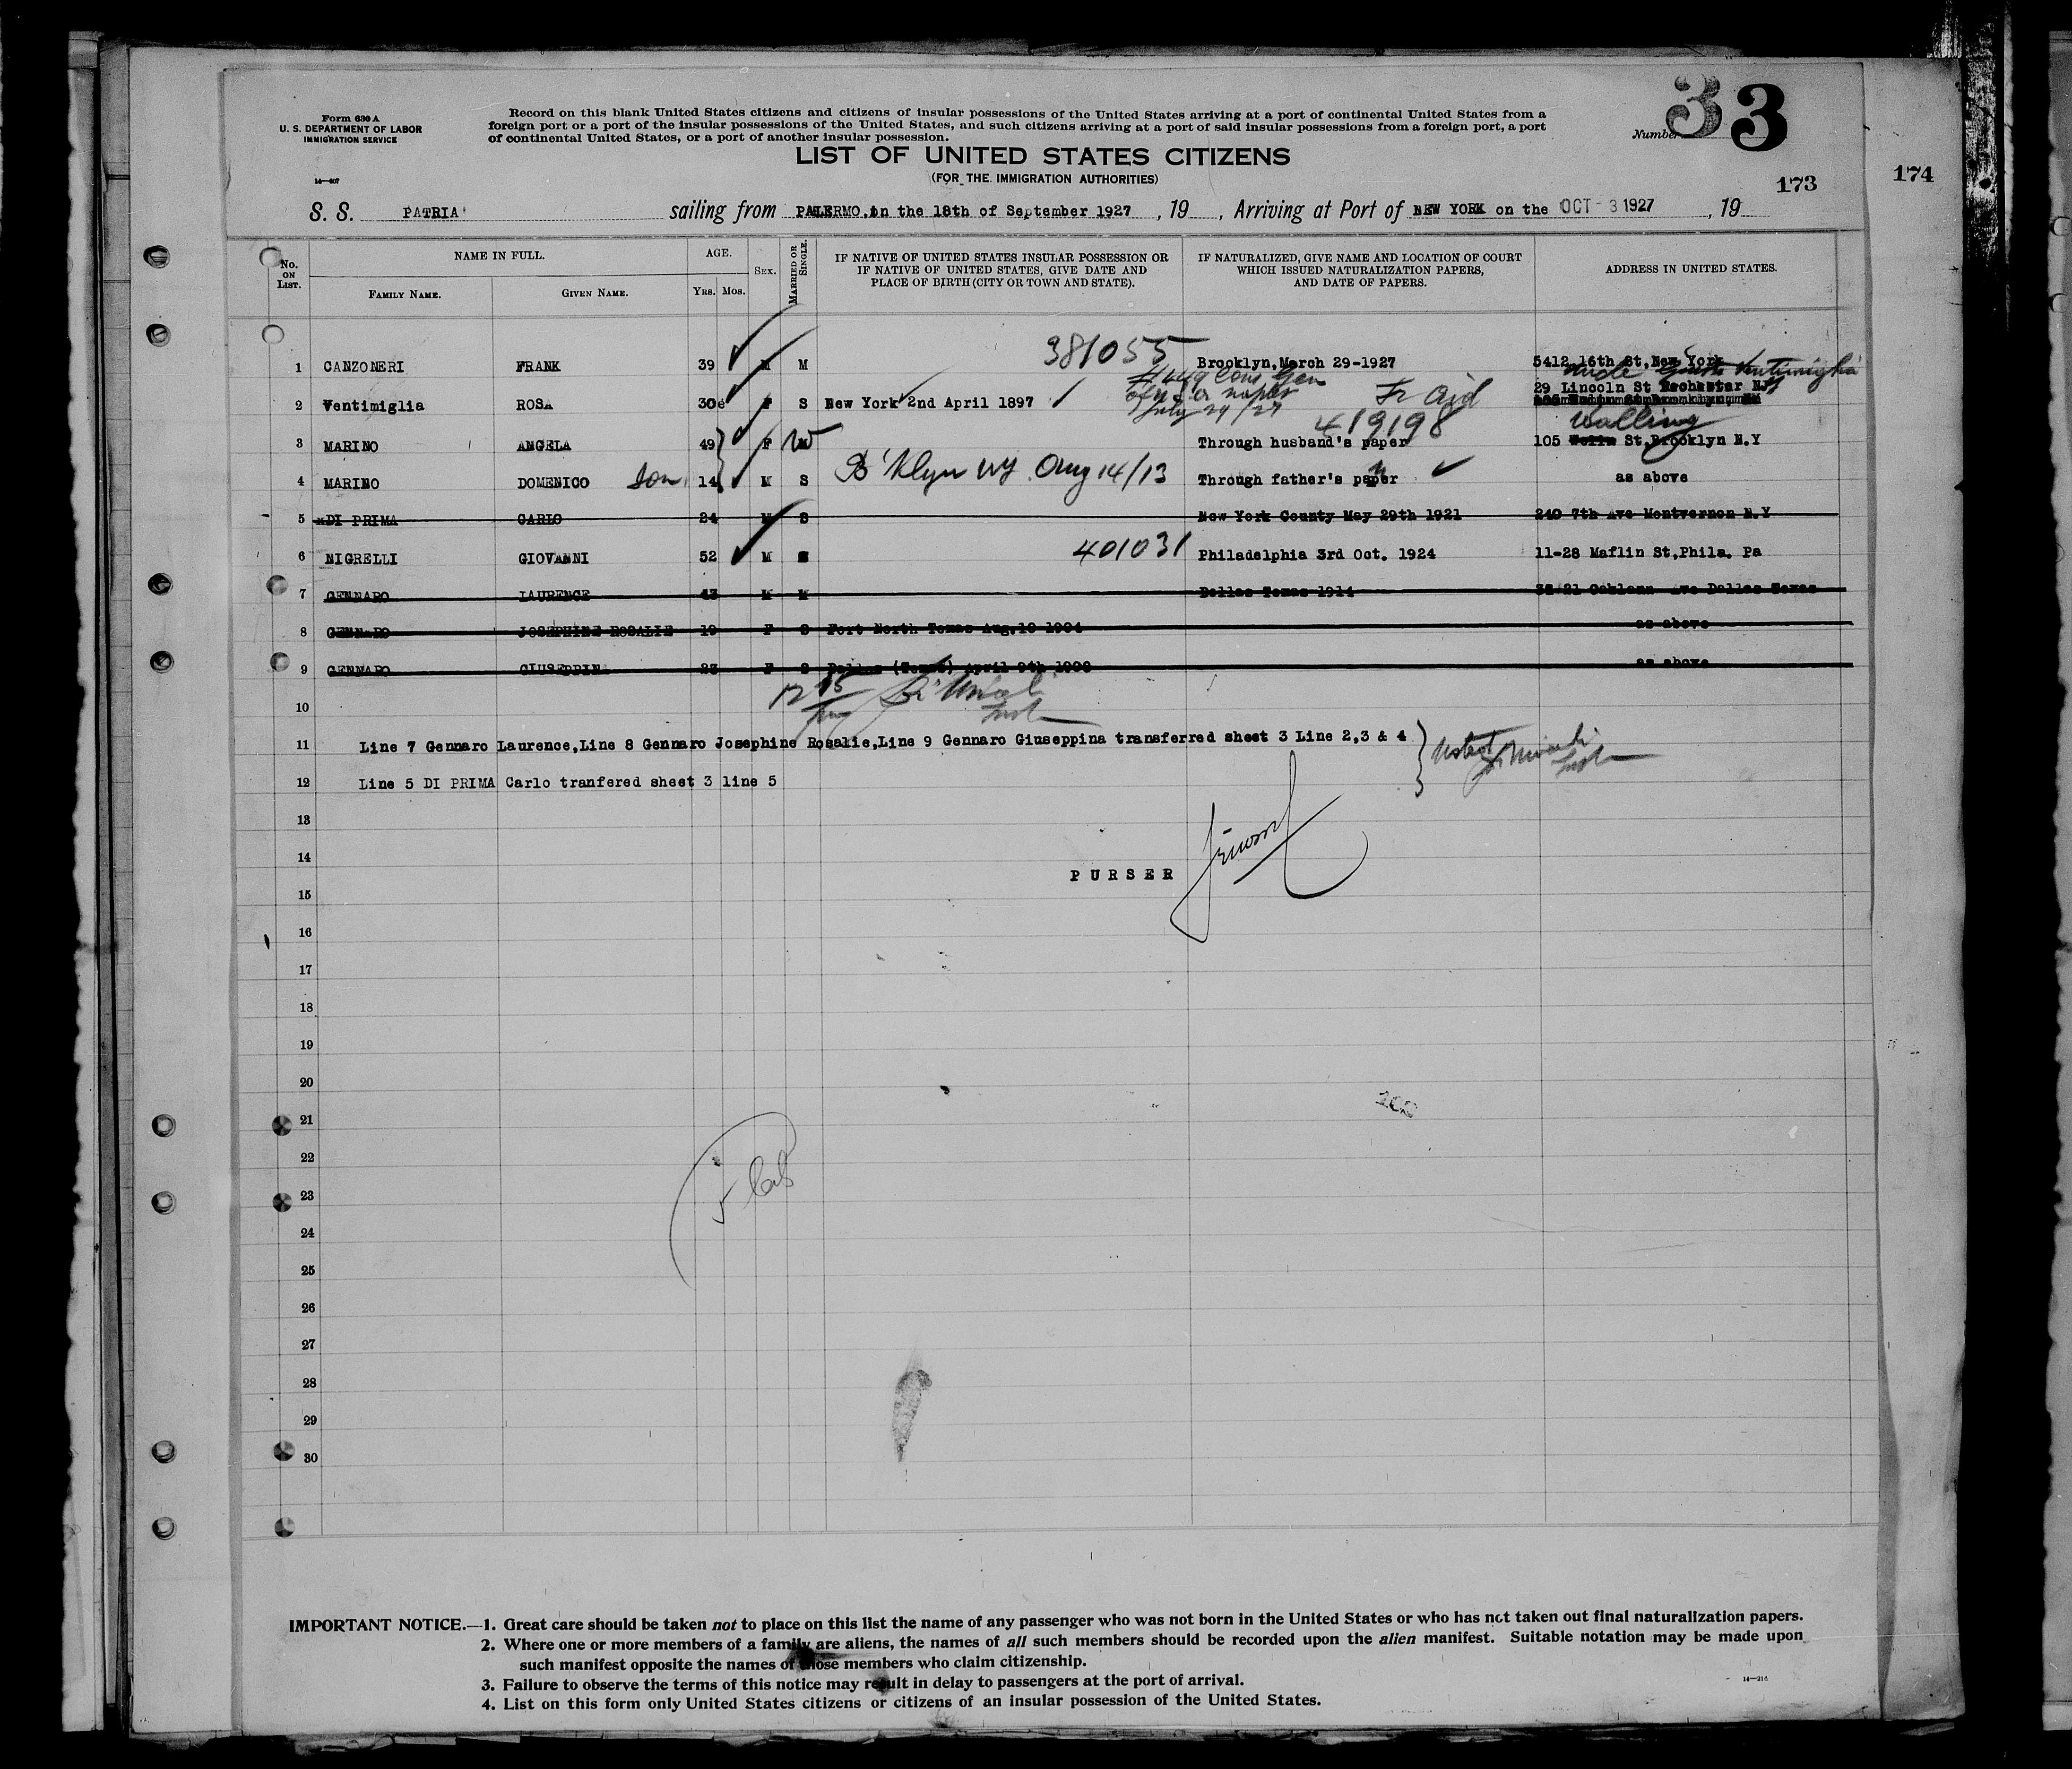 Form 630 A
U. S. DEPARTMENT OF LABOR
IMMIGRATION SERVICE
14—407
Record on this blank United States citizens and citizens of insular possessions of the United States arriving at a port of continental United States from a
foreign port or a port of the insular possessions of the United States, and such citizens arriving at a port of said insular possessions from a foreign port, a port
of continental United States, or a port of another insular possession.
Number 3 3
LIST OF UNITED STATES CITIZENS
(FOR THE IMMIGRATION AUTHORITIES)
173
174
S. S. PATRIA sailing from PALERMO, on the 18th of September 1927, 19 , Arriving at Port of NEW YORK on the OCT - 3 1927, 19
No. ON LIST.
NAME IN FULL.
FAMILY NAME.
GIVEN NAME.
AGE.
YRS. MOS.
SEX.
MARRIED OR SINGLE.
IF NATIVE OF UNITED STATES INSULAR POSSESSION OR
IF NATIVE OF UNITED STATES, GIVE DATE AND
PLACE OF BIRTH (CITY OR TOWN AND STATE).
IF NATURALIZED, GIVE NAME AND LOCATION OF COURT
WHICH ISSUED NATURALIZATION PAPERS,
AND DATE OF PAPERS.
ADDRESS IN UNITED STATES.
1 CANZONERI FRANK 39 M M 381055 Brooklyn, March 29-1927 5412 16th St, New York
Uncle Ventimiglia
2 Ventimiglia ROSA 30 F S New York 2nd April 1897 Cons Gen Naples July 29/27 Fr Aid 29 Lincoln St NJ
419198 Walling
3 MARINO ANGELA 49 F W Through husband's paper 105 St, Brooklyn N.Y
4 MARINO DOMENICO son 14 M S B'klyn NY Aug 14/13 Through father's paper as above
5 DI PRIMA CARLO 24 M S New York County May 29th 1921 240 7th Ave Montvernon N.Y
6 NIGRELLI GIOVANNI 52 M 401031 Philadelphia 3rd Oct. 1924 11-28 Maflin St, Phila. Pa
7 GENNARO LAURENCE 43 M M Dallas Texas 1914 Ave Dallas Texas
8 GENNARO JOSEPHINE ROSALIE 19 F S Fort North Texas Aug, as above
9 GENNARO GIUSEPPINA 23 F S Dallas (Texas) April 9th as above
10
11 Line 7 Gennaro Laurence, Line 8 Gennaro Josephine Rosalie, Line 9 Gennaro Giuseppina transferred sheet 3 Line 2,3 & 4
12 Line 5 DI PRIMA Carlo tranfered sheet 3 line 5
13
14
PURSER
15
16
17
18
19
20
21
22
23
24
25
26
27
28
29
30
IMPORTANT NOTICE.—1. Great care should be taken not to place on this list the name of any passenger who was not born in the United States or who has not taken out final naturalization papers.
2. Where one or more members of a family are aliens, the names of all such members should be recorded upon the alien manifest. Suitable notation may be made upon
such manifest opposite the names of those members who claim citizenship.
3. Failure to observe the terms of this notice may result in delay to passengers at the port of arrival.
4. List on this form only United States citizens or citizens of an insular possession of the United States.